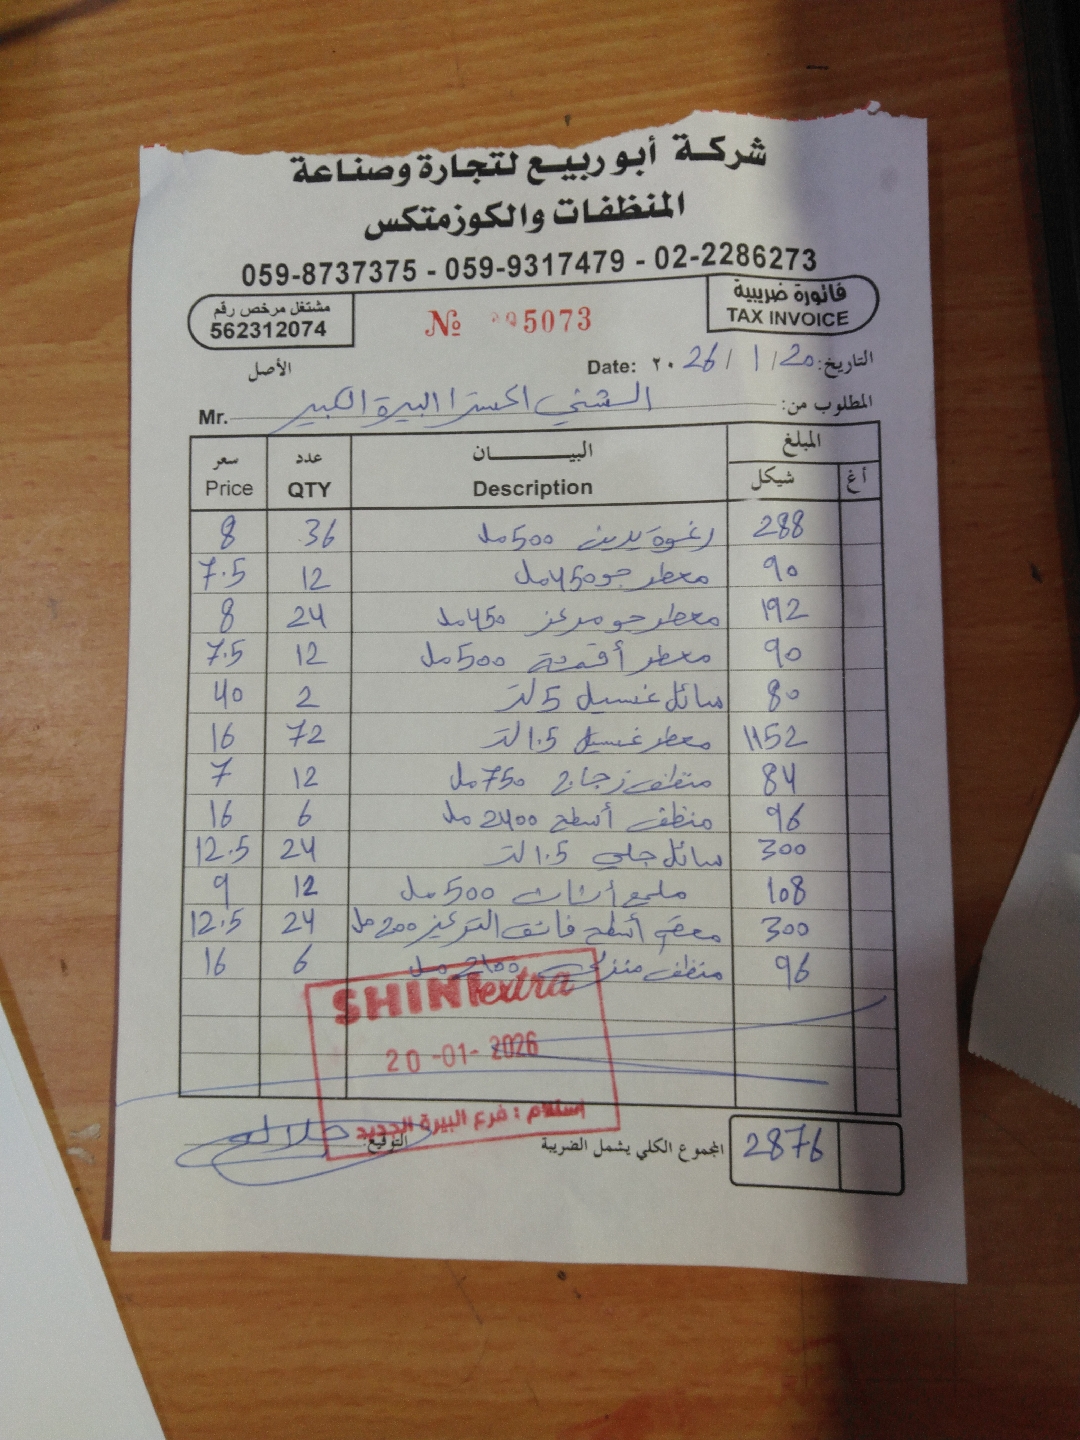 شركة أبو ربيع لتجارة وصناعة
المنظفات والكوزمتكس
059-8737375 - 059-9317479 - 02-2286273
فاتورة ضريبية
TAX INVOICE
مشتغل مرخص رقم
562312074
№ 5073
الأصل
التاريخ: 20 / 1 / 26 ٢٠ Date:
المطلوب من: الشني اكسترا البيرة الكبير Mr.
المبلغ البيــــــان عدد سعر
أغ شيكل Description QTY Price
288 رغوة يدين 500 مل 36 8
90 معطر جو 450 مل 12 7.5
192 معطر جو مركز 450 مل 24 8
90 معطر أقمشة 500 مل 12 7.5
80 سائل غسيل 5 لتر 2 40
1152 معطر غسيل 1.5 لتر 72 16
84 منظف زجاج 750 مل 12 7
96 منظف أسطح 2400 مل 6 16
300 سائل جلي 1.5 لتر 24 12.5
108 ملمع أثاث 500 مل 12 9
300 معقم أسطح فائق التركيز 200 مل 24 12.5
96 منظف منزلي مل 6 16
SHINI extra
20 -01- 2026
استلام : فرع البيرة الجديد
2876 المجموع الكلي يشمل الضريبة التوقيع: